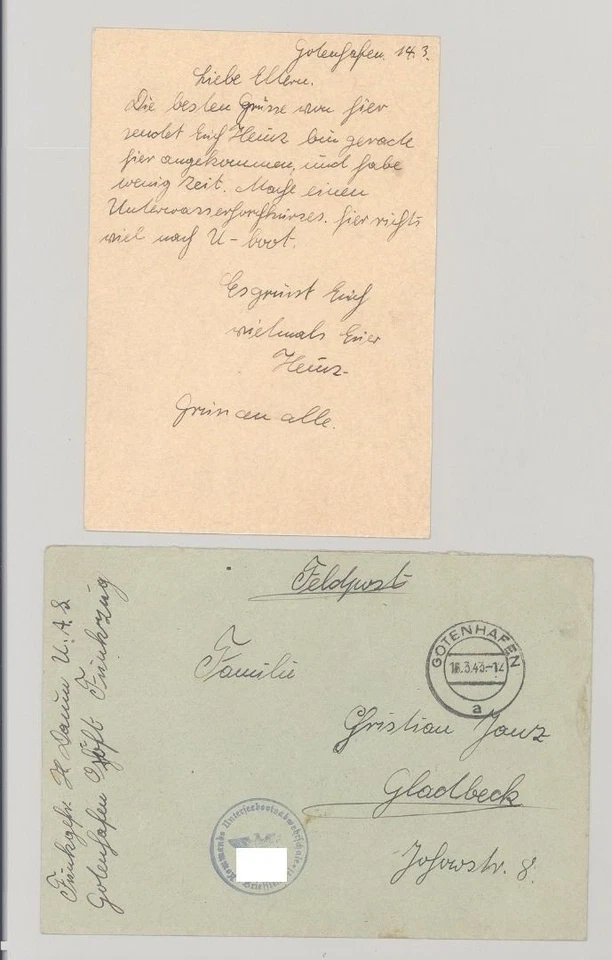 Gotenhafen. 14.3.
Liebe Eltern.
Die besten Grüsse von hier
sendet Euch Heinz bin gerade
hier angekommen, und habe
wenig Zeit. Mache einen
Unterwasserhorchkurses. hier richts
viel nach U-boot.
Es grüsst Euch
vielmals Euer
Heinz-
Gruss an alle.
Feldpost
GOTENHAFEN
.3.43.-12
a
Familie
Christian Janz
Gladbeck
Johowstr. 8.
Funkgfr. H Daum U.A.S
Gotenhafen Funkzug
Kommando Unterseebootsabwehrschule